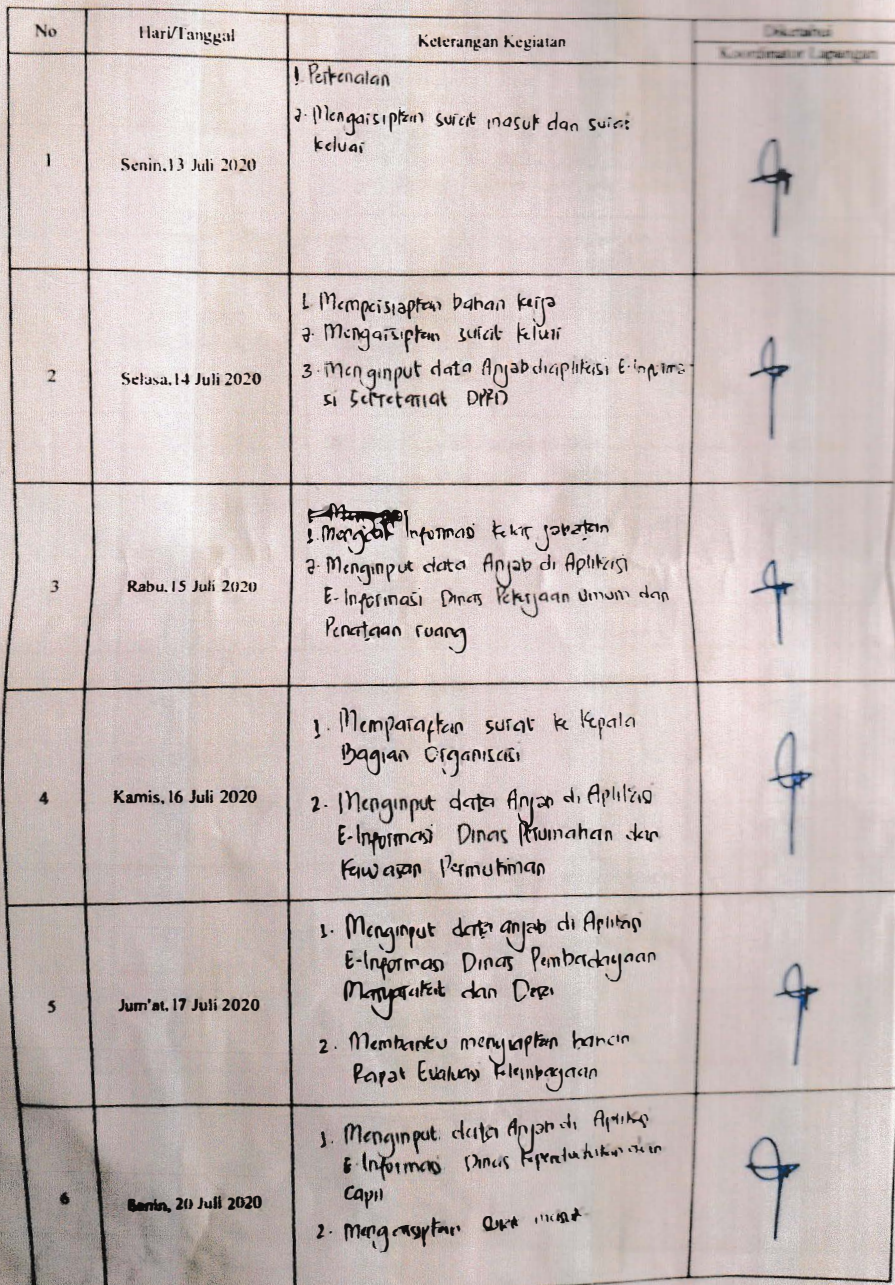 No Hari/Tanggal Keterangan Kegiatan Diketahui
Koordinator Lapangan
1 Senin, 13 Juli 2020
1. Perkenalan
2. Mengarsipkan surat masuk dan surat
keluar
2 Selasa, 14 Juli 2020
1. Mempersiapkan bahan kerja
2. Mengarsipkan surat keluar
3. Menginput data Anjab diaplikasi E-Informa-
si Sekretariat DPRD
3 Rabu, 15 Juli 2020
1. Mengcek Informasi jabatan
2. Menginput data Anjab di Aplikasi
E-Informasi Dinas Pekerjaan Umum dan
Penataan ruang
4 Kamis, 16 Juli 2020
1. Memparafkan surat ke Kepala
Bagian Organisasi
2. Menginput data Anjab di Aplikasi
E-Informasi Dinas Perumahan dan
Kawasan Permukiman
5 Jum'at, 17 Juli 2020
1. Menginput data anjab di Aplikasi
E-Informasi Dinas Pembadayaan
Masyarakat dan Desa
2. Membantu menyiapkan bahan
Rapat Evaluasi Kelembagaan
6 Senin, 20 Juli 2020
1. Menginput data Anjab di Aplikasi
E-Informasi Dinas Kependudukan dan
Capil
2. Mengarsipkan Surat masuk